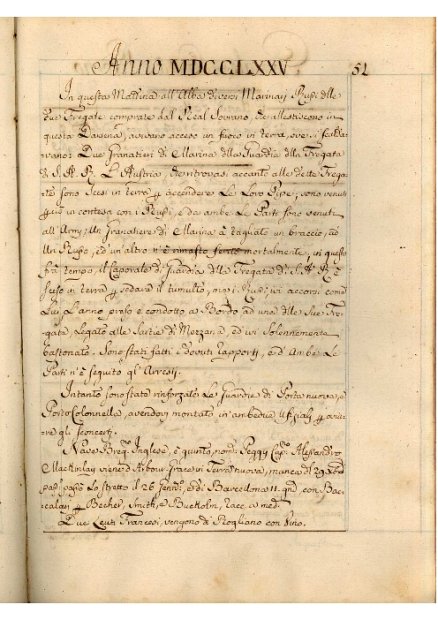 Anno MDCCLXXV. 51
In questa Mattina all'Alba diversi Marinari Russi delle
due Fregate comprate dal Real Sovrano, ed allestiscono in
questa Darsena, avevano acceso un fuoco in terra, ove si
vano: Due Granatieri di Marina della Guardia della Fregata
di S. A. R. L'Austria, ritrovasi accanto alle dette Frega
te sono scesi in terra p accendere le loro Pipe, sono venuti
in contesa con i Russi, e da ambe le Parti sono venuti
all'Armi, Un Granatiere di Marina à tagliato un braccio, ad
Un Russo, ed un'altro n'è rimasto ferito mortalmente, in questo
fra tempo, il Caporale di Guardia della Fregata di S. A. R. è
sceso in terra p sedare il tumulto, ma i Russi, ivi accorsi
Lui L'anno preso e condotto a Bordo ad una delle due Fre
gate, Legato alle Sartie di Mezzana, ed ivi Solennemente
bastonato. Sono stati fatti i dovuti rapporti, e ad Ambe Le
Parti n'è seguito gli Arresti.
Intanto sono state rinforzate Le Guardie di Porta nuova, e
Porto Colonnella, avendovi montato in ambedue Uffiziali p
gli sconcerti.
Nave Brig.º Inglese, è quinto, nom.º Peggy Cap.º Alessandro
Mackinlay viene d'Arbour Grace in Terra nuova, manca di 29
passò Lo Stretto il 26 Send.º, e di Barcelona 11 gni con Bac
calari p Becher, Smith, e Bucholm, racc. a med.
Due Leuti Francesi, vengono di Rogliano con Vino.